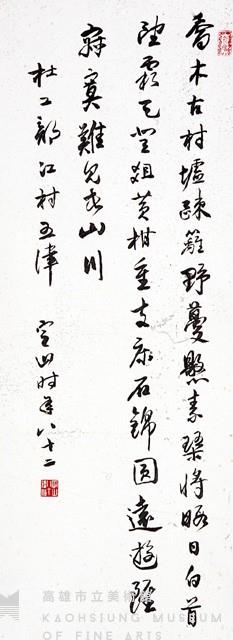 喬木古村墟疎籬野蔓懸素琴將暇日白首
望霜天登俎黃柑重支床石錦圓遠遊雖
寂寞難見此山川
杜工部江村五律 定山時年八十二
高雄市立美術館
KAOHSIUNG MUSEUM
OF FINE ARTS